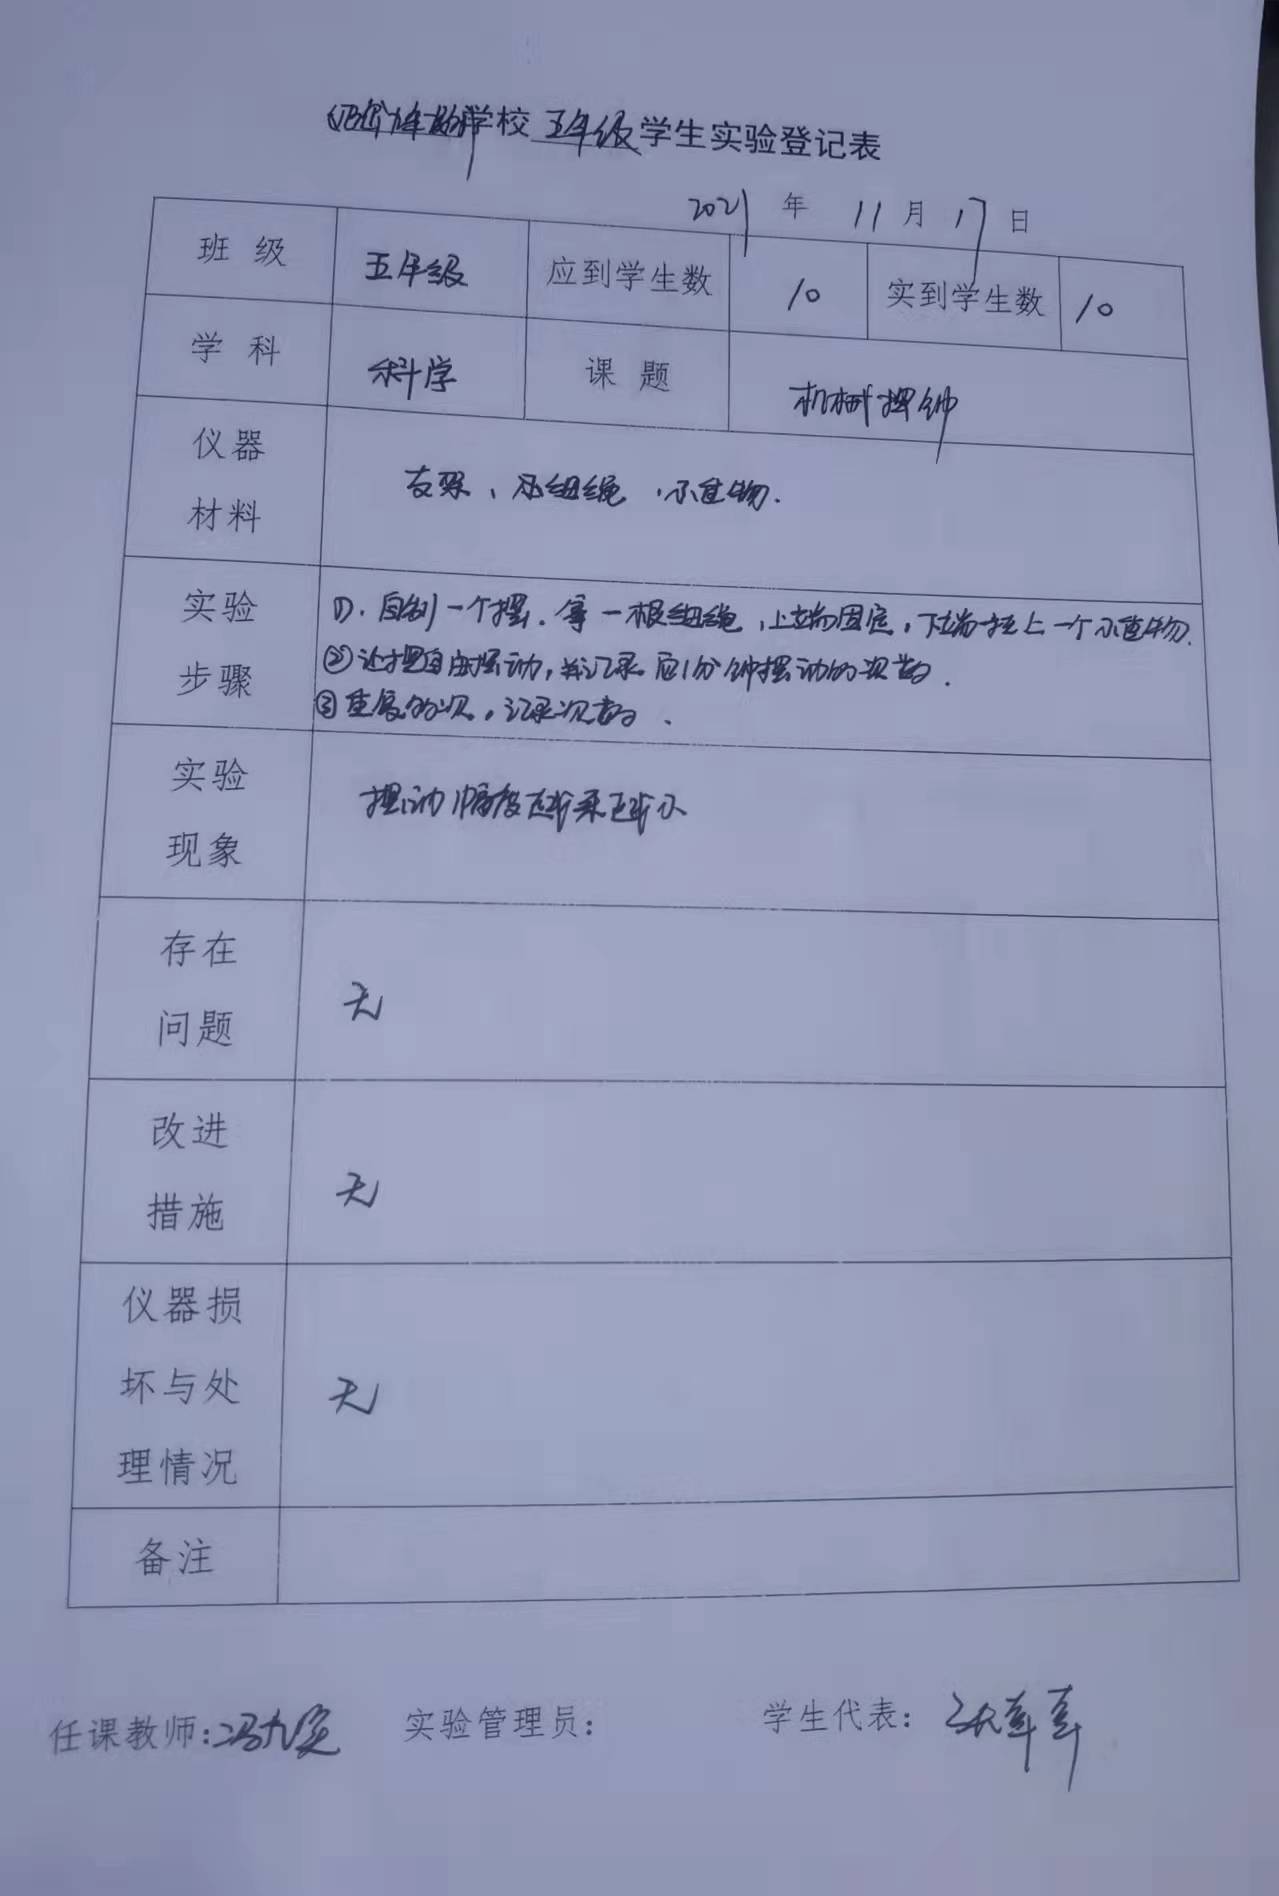 学校 五年级 学生实验登记表
2021 年 11 月 17 日
班 级 五年级 应到学生数 10 实到学生数 10
学 科 科学 课 题 机械摆钟
仪器
材料
支架、 细绳 、小重物.
实验
步骤
①. 自制一个摆. 拿一根细绳,上端固定,下端挂上一个小重物.
②让摆自由摆动,并记录 1分钟摆动的次数.
③重复 次,记录次数.
实验
现象
摆动幅度越来越小
存在
问题
无
改进
措施
无
仪器损
坏与处
理情况
无
备注
任课教师: 实验管理员: 学生代表: